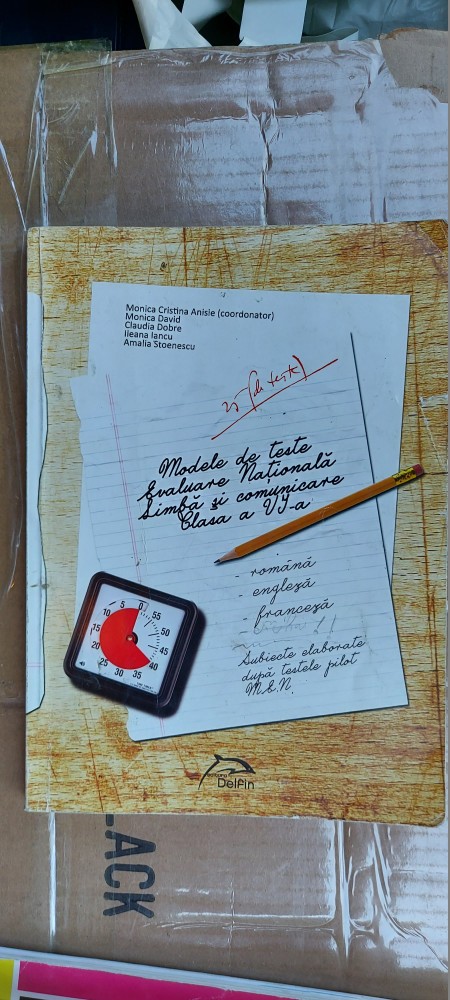 Monica Cristina Anisie (coordonator)
Monica David
Claudia Dobre
Ileana Iancu
Amalia Stoenescu
25 (de teste)
Modele de teste
Evaluare Națională
Limbă și comunicare
Clasa a VI-a
- română
- engleză
- franceză
Subiecte elaborate
după testele pilot
M.E.N.
0
5
10
15
20
25
30
35
40
45
50
55
editura
Delfin
LACK